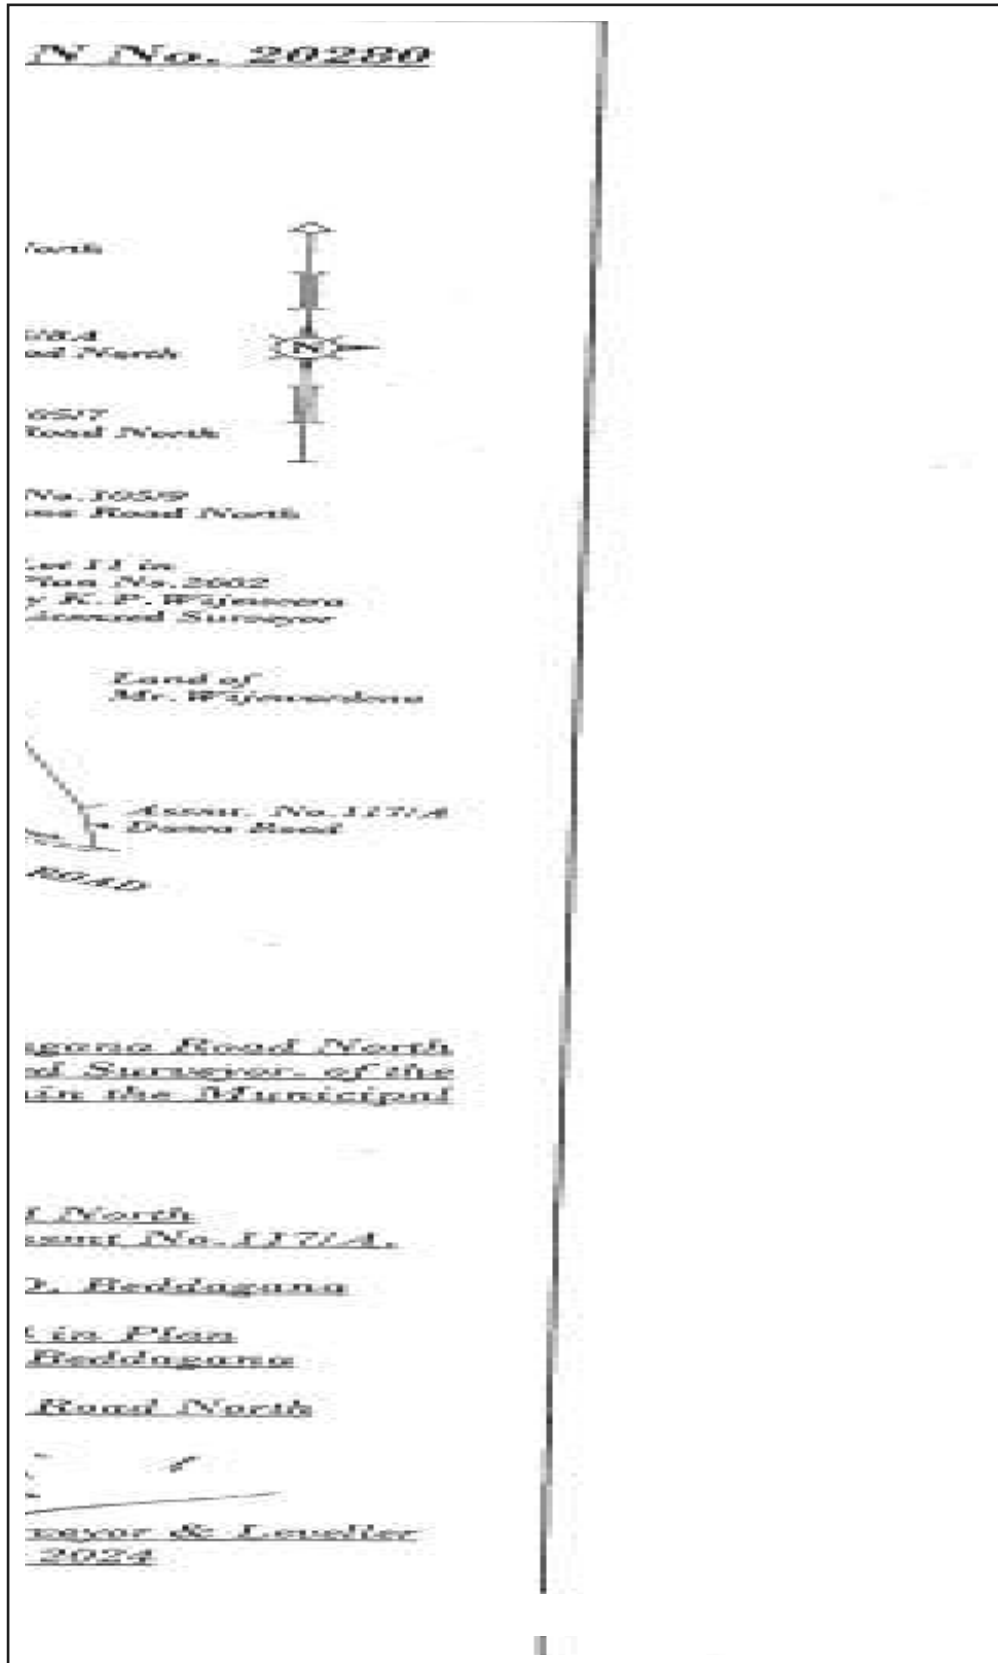 N No. 20280
orth
N
/8A
ad North
105/7
Road North
No.105/9
Road North
Lot 11 in
Plan No.2002
y K.P.Wijeweera
icensed Surveyor
Land of
Mr.Wijewardena
Assmt. No.117/A
Dawa Road
ROAD
agana Road North
ed Surveyor, of the
in the Municipal
d North
ssmt No.117/A,
D, Beddagana
t in Plan
Beddagana
Road North
veyor & Leveller
2024